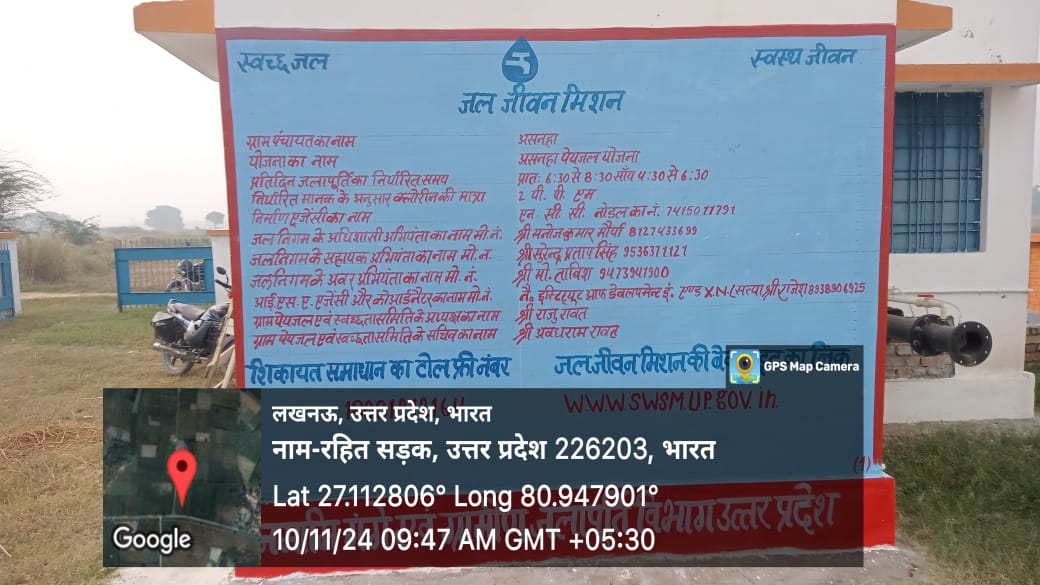 स्वच्छ जल
स्वस्थ जीवन
जल जीवन मिशन
ग्राम पंचायत का नाम असनहा
योजना का नाम असनहा पेयजल योजना
प्रतिदिन जलापूर्ति का निर्धारित समय प्रातः 6:30 से 8:30 साँय 4:30 से 6:30
निर्धारित मानक के अनुसार क्लोरीन की मात्रा 2 पी. पी. एम
निर्माण एजेंसी का नाम एन. सी. सी. नोडल का नं. 7415011791
जल निगम के अधिशासी अभियंता का नाम मो. नं. श्री मनोज कुमार मौर्या 8127433699
जल निगम के सहायक अभियंता का नाम मो. नं. श्री सुरेन्द्र प्रताप सिंह 9536371121
जल निगम के अवर अभियंता का नाम मो. नं. श्री मो. ताबिश 9473941900
आई. एस. ए. एजेंसी और कोआर्डीनेटर का नाम मो. नं. नै. इंस्टिट्यूट आफ डेवलपमेन्ट इं. एण्ड X.N. (सत्या श्री राजेश 8938906925
ग्राम पेयजल एवं स्वच्छता समिति के अध्यक्ष का नाम श्री राजु रावत
ग्राम पेयजल एवं स्वच्छता समिति के सचिव का नाम श्री अवधराम रावत
शिकायत समाधान का टोल फ्री नंबर
जल जीवन मिशन की का लिंक
W.W.W.SWSM.UP.GOV.in.
(1)
ग्रामीण जलापूर्ति विभाग उत्तर प्रदेश
GPS Map Camera
लखनऊ, उत्तर प्रदेश, भारत
नाम-रहित सड़क, उत्तर प्रदेश 226203, भारत
Lat 27.112806° Long 80.947901°
10/11/24 09:47 AM GMT +05:30
Google